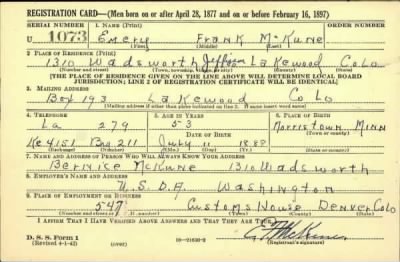 REGISTRATION CARD—(Men born on or after April 28, 1877 and on or before February 16, 1897)
SERIAL NUMBER 1. NAME (Print) ORDER NUMBER
U 1073 Emery Frank McKune
(First) (Middle) (Last)
2. PLACE OF RESIDENCE (Print)
1310 Wadsworth Jefferson Lakewood Colo
(Number and street) (Town, township, village, or city) (County) (State)
[THE PLACE OF RESIDENCE GIVEN ON THE LINE ABOVE WILL DETERMINE LOCAL BOARD
JURISDICTION; LINE 2 OF REGISTRATION CERTIFICATE WILL BE IDENTICAL]
3. MAILING ADDRESS
Box 193 Lakewood Colo
(Mailing address if other than place indicated on line 2. If same insert word same)
4. TELEPHONE 5. AGE IN YEARS 6. PLACE OF BIRTH
La 279 53 Morristown Minn
DATE OF BIRTH
Ke 4151 Brs 211 July 11 1888
(Exchange) (Number) (Mo.) (Day) (Yr.) (Town or county) (State or country)
7. NAME AND ADDRESS OF PERSON WHO WILL ALWAYS KNOW YOUR ADDRESS
Bernice McKune 1310 Wadsworth
8. EMPLOYER'S NAME AND ADDRESS
U.S.D.A. Washington
9. PLACE OF EMPLOYMENT OR BUSINESS
547 Customs House Denver Colo
(Number and street or R. F. D. number) (Town) (County) (State)
I AFFIRM THAT I HAVE VERIFIED ABOVE ANSWERS AND THAT THEY ARE TRUE.
D. S. S. Form 1
(Revised 4-1-42) (over) 16—21630-2 (Registrant's signature)